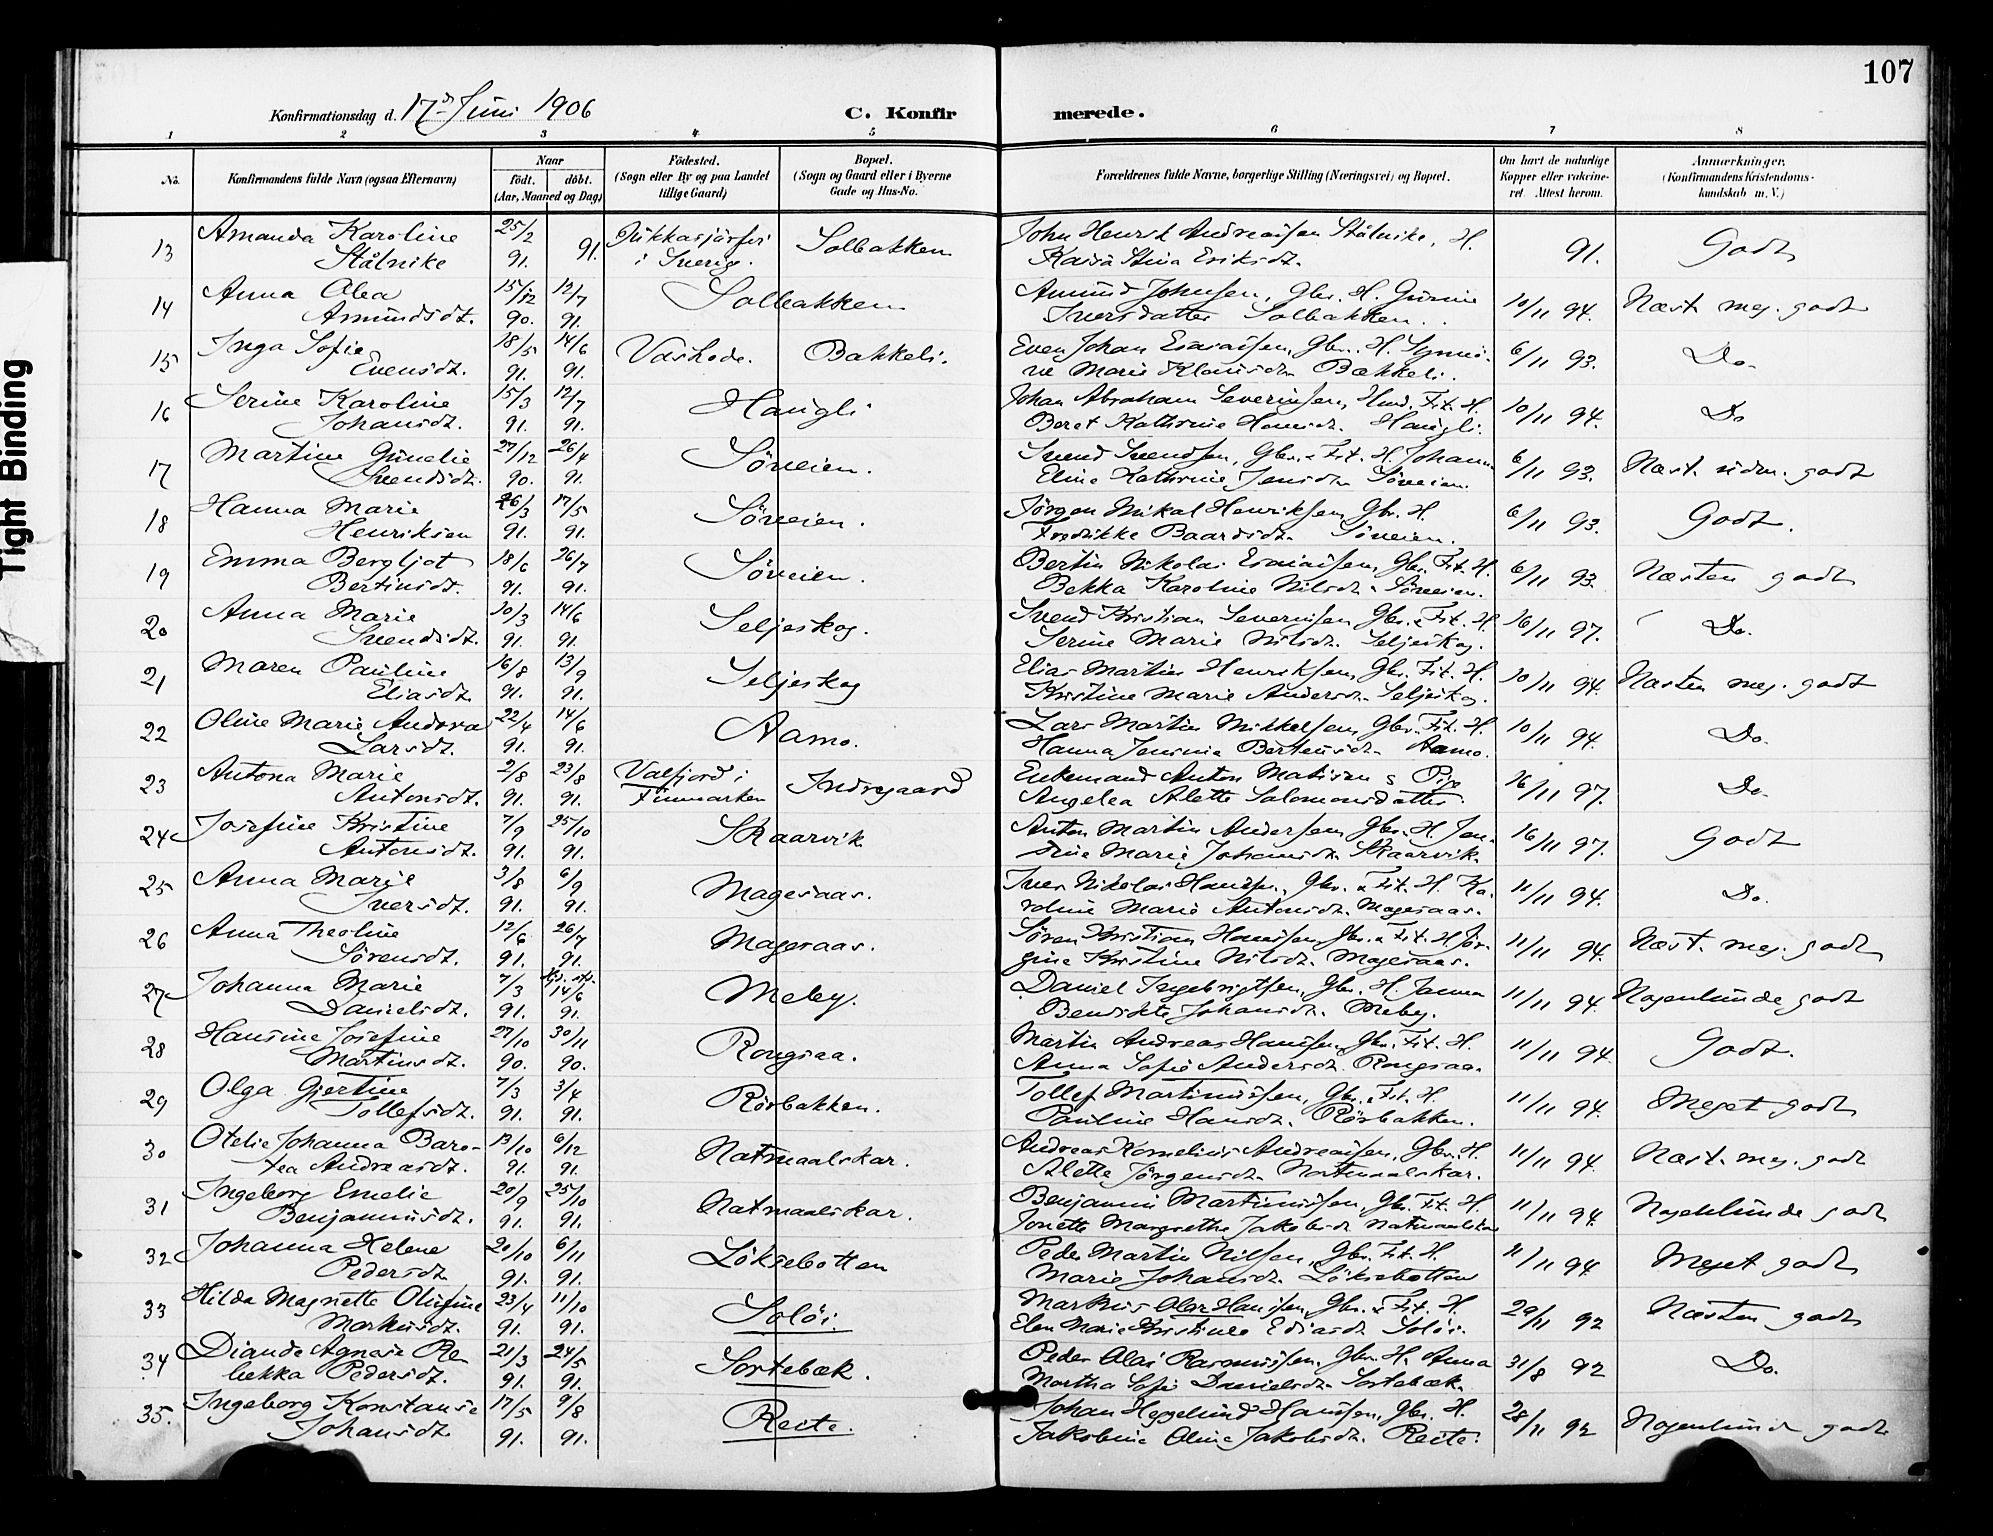 107
Konfirmationsdag d. 17d Juni 1906
C. Konfirmerede.
1 2 3 4 5 6 7 8
No. Konfirmandens fulde Navn (ogsaa Efternavn) Naar födt. döbt. (Aar, Maaned og Dag) Födested. (Sogn eller By og paa Landet tillige Gaard) Bopæl. (Sogn og Gaard eller i Byerne Gade og Hus-No. Forældrenes fulde Navne, borgerlige Stilling (Næringsvei) og Bopæl. Om havt de naturlige Kopper eller vakcineret. Attest herom. Anmærkninger. (Konfirmandens Kristendomskundskab m. V.)
Tight Binding
13 Amanda Karoline 25/2 Jukkasjärfvi Solbakken John Henrik Andreassen Stålnike, H.
Stålnike 91. 91. i Sverig. Kaisa Stina Eriksdt. 91. Godt
14 Anna Olea 15/12 12/7 Solbakken Amund Johnsen, Gbr. H.
Amundsdt. 90. 91. Iversdatter Solbakken. 10/11 94. Næst. meg. godt
15 Inga Sofie 18/5 14/6 Bakkeli. Even Johan Esaiassen, Gbr. H.
Evensdt. 91. 91. Marie Klausdt. Bakkeli. 6/11 93. Do.
16 Serine Karoline 15/3 12/7 Haugli Johan Abraham Severinsen, H.
Johansdt. 91. 91. Beret Kathrine Hansdt. Haugli. 10/11 94. Do
17 Martine Gunelie 27/12 26/4 Sörreien. Svend Svendsen, Gbr. & Fit. H. Johanna
Svendsdt. 90. 91. Eline Kathrine Jensdt. Sörreien. 6/11 93. Næst. udm. godt
18 Hanna Marie 26/3 17/5 Sörreien. Jörgen Mikal Henriksen, Gbr. H.
Henriksen 91. 91. Fredrikke Baardsdt. Sörreien. 6/11 93. Godt.
19 Emma Bergljot 18/6 26/7 Sörreien. Bertin Nikolai Esaiassen, Gbr. Fit. H.
Bertinsdt. 91. 91. Bekka Karoline Nilsdt. Sörreien. 6/11 93. Næsten godt
20 Anna Marie 30/3 14/6 Seljeskog. Svend Kristian Severinsen Gbr. & Fit. H.
Svendsdt. 91. 91. Serine Marie Nilsdt. Seljeskog. 16/11 97. Do.
21 Maren Pauline 16/8 13/9 Seljeskog Elias Martin Henriksen, Gbr. Fit. H.
Eliasdt. 91. 91. Kristine Marie Andersdt. Seljeskog. 10/11 94. Næsten meg. godt
22 Oline Marie Andrea 22/4 14/6 Aamo. Lars Martin Mikkelsen, Gbr. Fit. H.
Larsdt. 91. 91. Hanna Jensine Bertensdt. Aamo. 10/11 94. Do.
23 Antona Marie 2/8 23/8 Valfjord i Indregaard Enkemand Anton Matisen & Pige
Antonsdt. 91. 91. Finmarken Angelea Alette Salomonsdatter. 16/11 97. Do.
24 Josefine Kristine 7/9 25/10 Skaarvik Anton Martin Andersen, Gbr. H.
Antonsdt. 91. 91. Marie Johansdt. Skaarvik. 16/11 97. Godt
25 Anna Marie 3/8 6/9 Mageraas. Iver Nikolai Hansen, Gbr. & Fit. H. Ka-
Iversdt. 91. 91. roline Marie Antonsdt. Mageraas. 11/11 94. Do.
26 Anna Theoline 12/6 26/7 Mageraas. Sören Kristian Hansen, Gbr. & Fit. H. Jör-
Sörensdt. 91. 91. gine Kristine Nilsdt. Mageraas. 11/11 94. Næst. meg. godt
27 Johanna Marie 7/3 14/6 Meby. Daniel Ingebrigtsen, Gbr. H.
Danielsdt. 91. 91. Benedikte Johansdt. Meby. 11/11 94. Nogenlunde godt
28 Hansine Josefine 27/10 30/11 Rongsaa. Martin Andreas Hansen, Gbr. Fit. H.
Martinsdt. 90. 90. Anna Sofie Andersdt. Rongsaa. 11/11 94. Godt.
29 Olga Gjertine 7/3 3/4 Rörbakken. Tollef Martinussen, Gbr. & Fit. H.
Tollefsdt. 91. 91. Pauline Hansdt. Rörbakken. 11/11 94. Meget godt
30 Otelie Johanna Baro- 13/10 6/12 Natmaalskar. Andreas Kornelius Andreassen, Gbr. H.
tea Andreasdt. 91. 91. Alette Jörgensdt. Natmaalskar. 11/11 94. Næst. meg. godt
31 Ingeborg Emelie 20/9 25/10 Natmaalskar. Benjamin Martinussen, Gbr. Fit. H.
Benjaminsdt. 91. 91. Jonette Margrethe Jakobsdt. Natmaalskar 11/11 94. Nogenlunde godt
32 Johanna Helene 20/10 6/11 Löksebotten Peder Martin Nilsen, Gbr. Fit. H.
Pedersdt. 91. 91. Marie Johansdt. Löksebotten 11/11 94. Meget godt
33 Hilda Magnette Olufine 23/4 11/10 Solöi. Markus Olai Hansen, Gbr. & Fit. H.
Markusdt. 91. 91. Elen Marie Kristine Solöi. 29/11 92 Næsten godt
34 Agnes Re- 21/3 24/5 Sortebæk. Peder Olai Rasmussen, Gbr. H. Anna
bekka Pedersdt. 91. 91. Martha Sofie Danielsdt. Sortebæk. 31/8 92 Do.
35. Ingeborg Konstanse 17/5 9/8 Reite. Johan Hegelund Hansen, Gbr. H.
Johansdt. 91. 91. Jakobine Oline Jakobsdt. Reite. 28/11 92 Nogenlunde godt